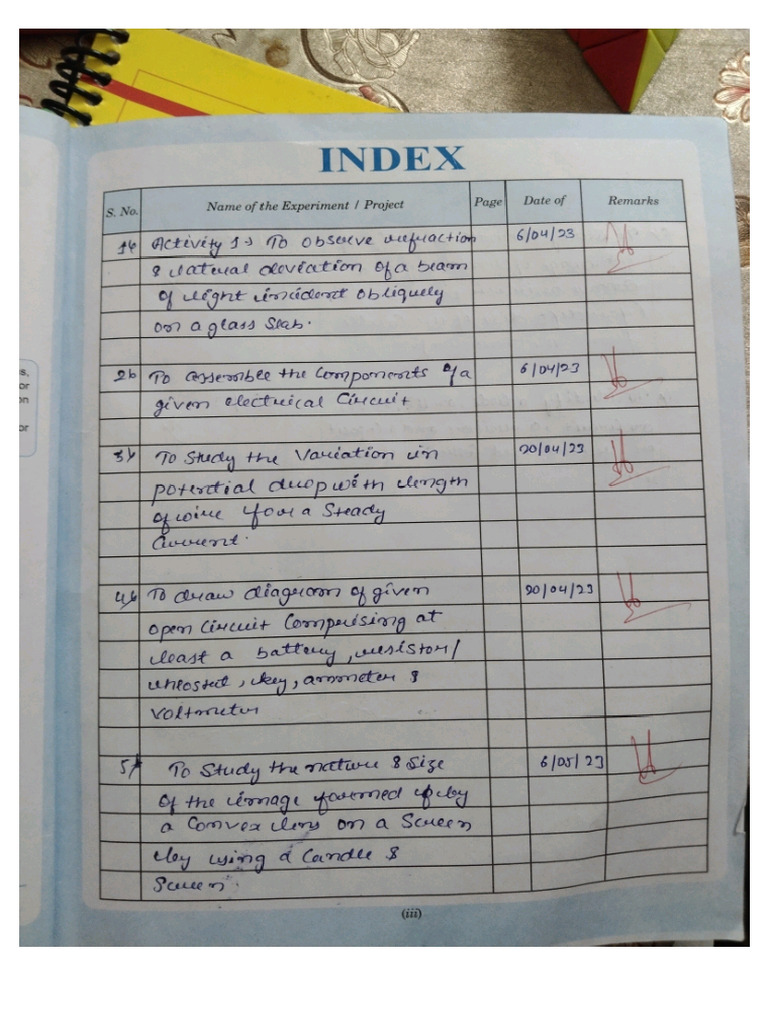 INDEX
S. No. Name of the Experiment / Project Page Date of Remarks
1. Activity 1 → To observe refraction 6/04/23
& lateral deviation of a beam
of light incident obliquely
on a glass slab.
2. To assemble the components of a 6/04/23
given electrical circuit
3. To study the variation in 20/04/23
potential drop with length
of wire for a steady
current.
4. To draw diagram of given 20/04/23
open circuit comprising at
least a battery, resistor/
rheostat, key, ammeter &
voltmeter
5. To study the nature & size 6/05/23
of the image formed by
a convex lens on a screen
by using a candle &
screen.
(iii)
s,
or
on
or